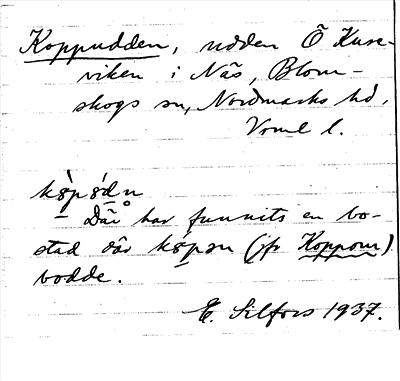 Koppudden, udden Ö Kuse-
viken i Näs, Blom-
skogs sn, Nordmarks hd,
Vrml l.
Där har funnits en bo-
stad där köpən (jfr Koppom)
bodde.
E. Silfors 1937.